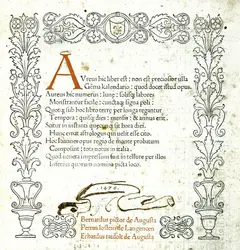 Aureus hic liber est: non est preciosior ulla
Gēma kalendario: quod docet istud opus.
Aureus hic numerus: lune: solisq; labores
Monstrantur facile: cunctaq; signa poli:
Quotq; sub hoc libro terre per longa regantur
Tempora: quisq; dies: mensis: & annus erit.
Scitur in instanti quecunq; sit hora diei.
Hunc emat astrologus qui velit esse cito.
Hoc Ioannes opus regio de monte probatum
Composuit: tota notus in italia.
Quod ueneta impressum fuit in tellure per illos
Inferius quorum nomina picta loco.
1476
Bernardus pictor de Augusta
Petrus loslein de Langencen
Erhardus ratdolt de Augusta